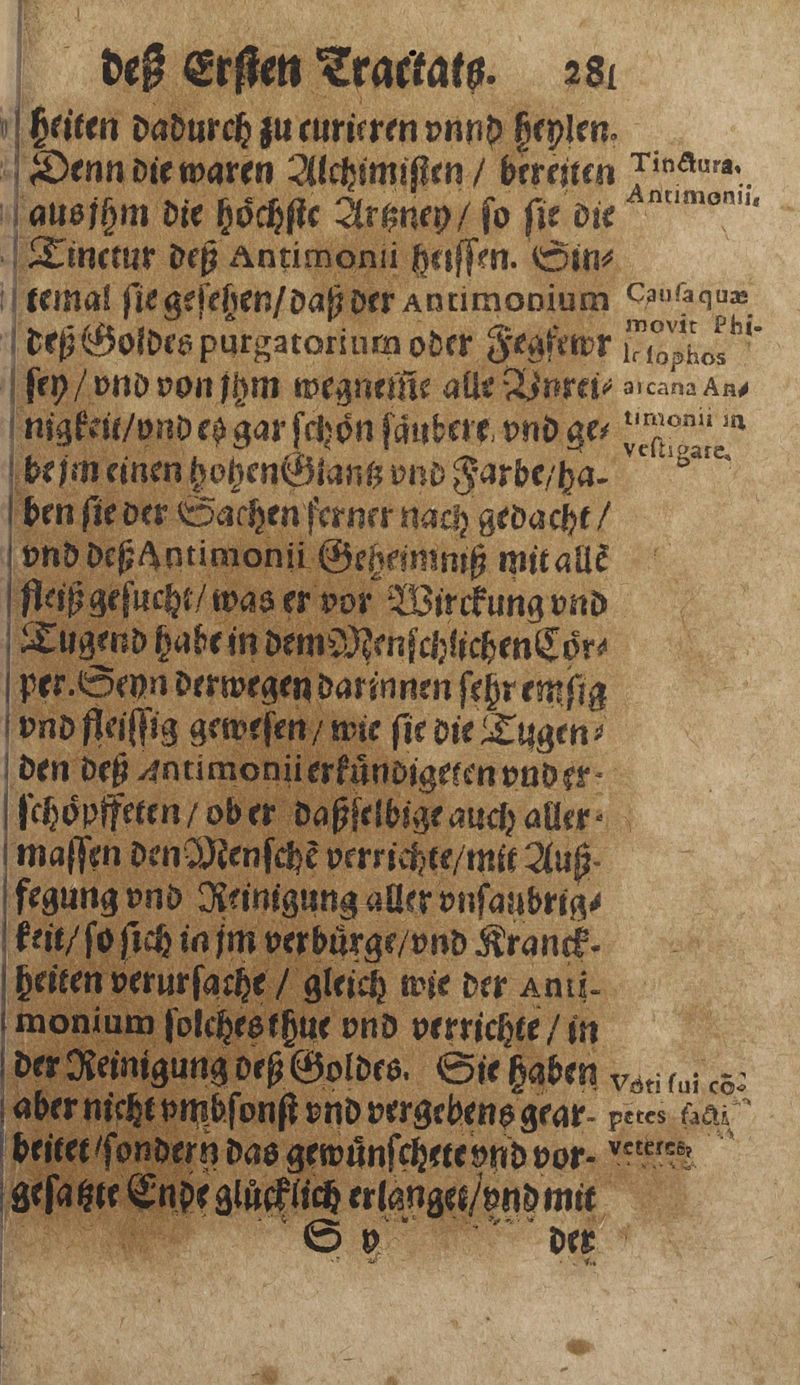 deß Erſten Tractats. 281
heiten dadurch zu curieren vnnd heylen.
Denn die waren Alchimiſten / bereiten
aus jhm die höchſte Artzney / ſo ſie die
Tinctur deß Antimonii heiſſen. Sin⸗
temal ſie geſehen / daß der Antimonium
deß Goldes purgatorium oder Fegfewr
ſey / vnd von jhm wegnem̃e alle Vnrei⸗
nigkeit / vnd es gar ſchön ſäubere vnd ge⸗
be jm einen hohen Glantz vnd Farbe / ha-
ben ſie der Sachen ferner nach gedacht /
vnd deß Antimonii Geheimniß mit allẽ
fleiß geſucht / was er vor Wirckung vnd
Tugend habe in dem Menſchlichen Cör⸗
per. Seyn derwegen darinnen ſehr emſig
vnd fleiſſig geweſen / wie ſie die Tugen⸗
den deß Antimonii erkündigeten vnd er-
ſchöpffeten / ob er daßſelbige auch aller-
maſſen den Menſchẽ verrichte / mit Auß-
fegung vnd Reinigung aller vnſaubrig⸗
keit / ſo ſich in jm verbürge / vnd Kranck-
heiten verurſache / gleich wie der Anti-
monium ſolches thue vnd verrichte / in
der Reinigung deß Goldes. Sie haben
aber nicht vmbſonſt vnd vergebens gear-
beitet / ſondern das gewünſchete vnd vor-
geſatzte Ende glücklich erlanget / vnd mit
S v der
Tinctura.
Antimonii,
Cauſa quæ
movit Phi-
loſophos
arcana An⸗
timonii in
veſtigare.
Voti ſui cõ-
petes facti
veteres,